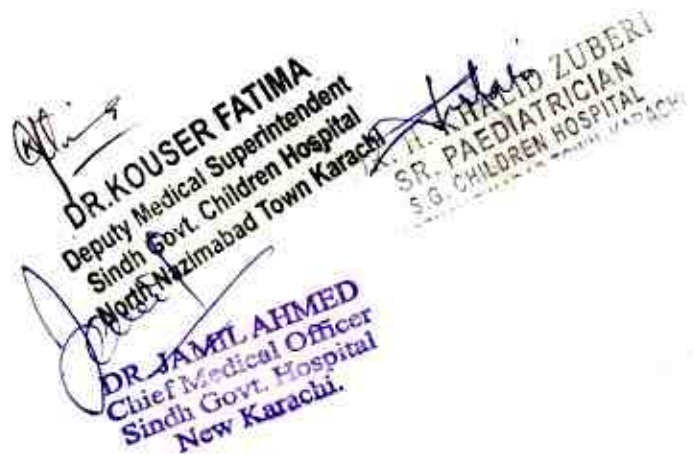 DR.KOUSER FATIMA
Deputy Medical Superintendent
Sindh Govt. Children Hospital
North Nazimabad Town Karachi
KHALID ZUBERI
SR. PAEDIATRICIAN
S.G. CHILDREN HOSPITAL
TOWN, KARACHI
DR. JAMIL AHMED
Chief Medical Officer
Sindh Govt. Hospital
New Karachi.